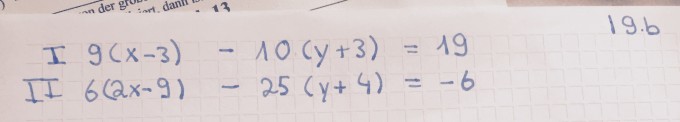 on der grö
dann i
13
19.b
I 9(x-3) - 10(y+3) = 19
II 6(2x-9) - 25(y+4) = -6